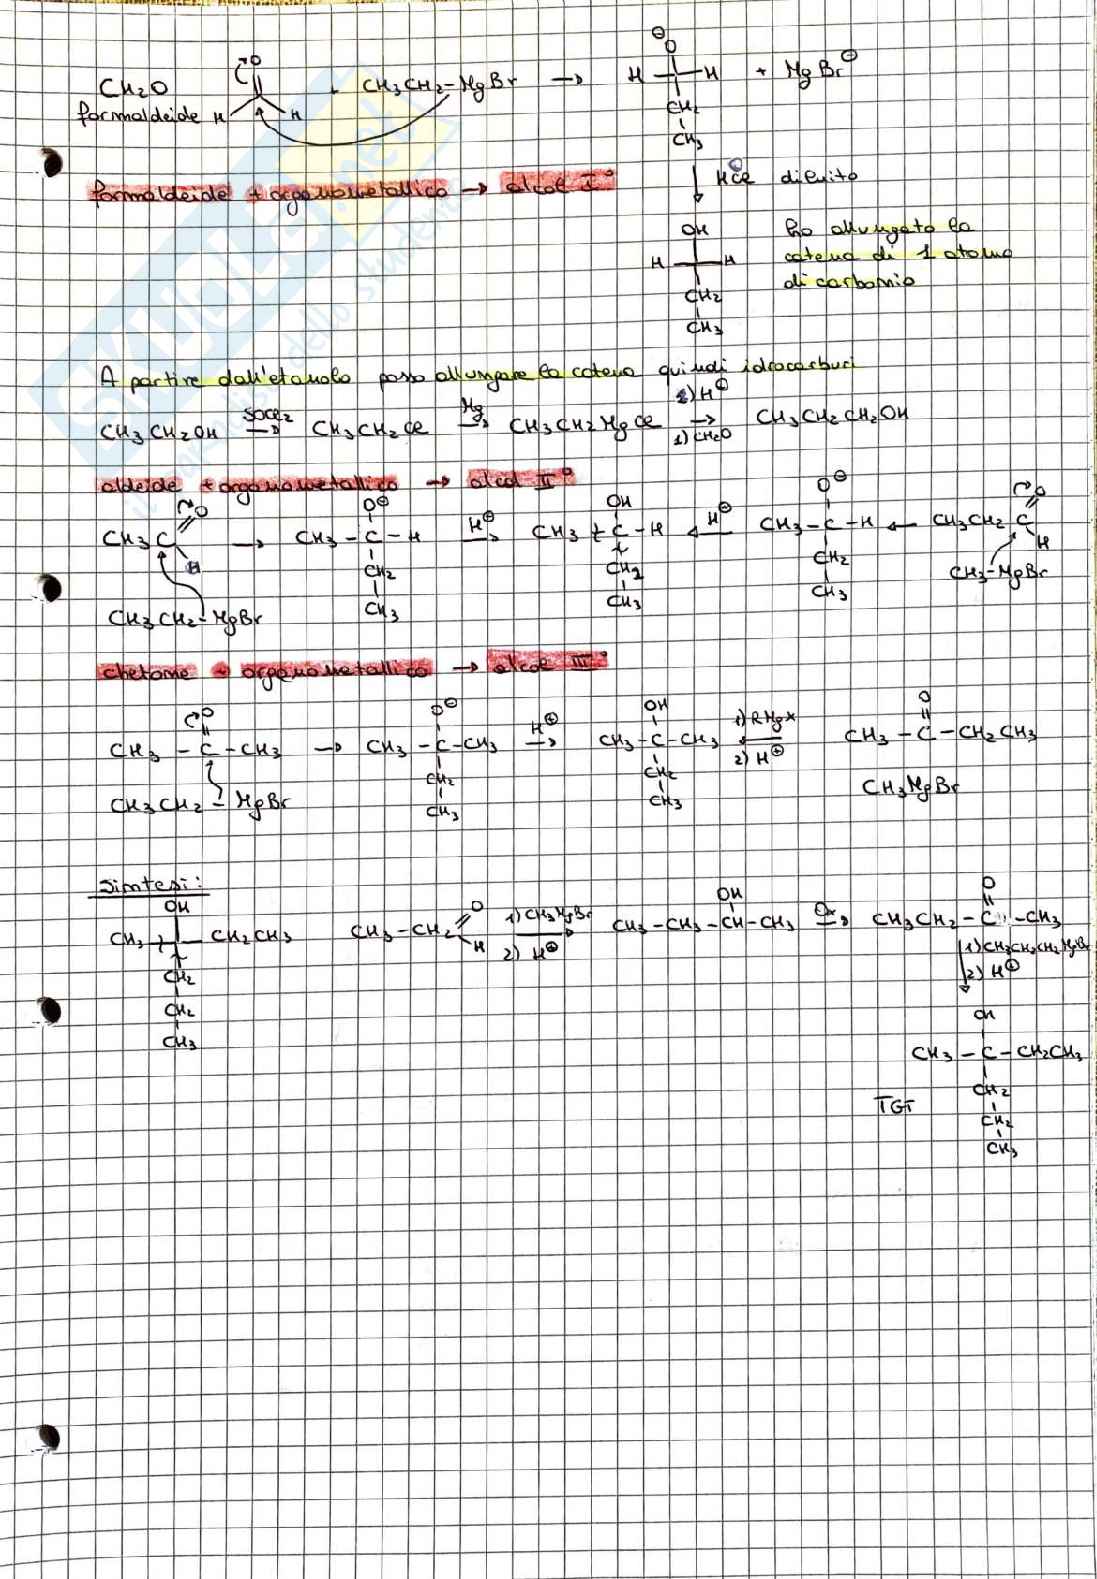 CH2O
formaldeide
H H O + CH3CH2-MgBr → H H O⊖ CH2 CH3 + MgBr⊕
formaldeide + organometallico → alcol I°
HCl diluito
OH
H H CH2 CH3
ho allungato la
catena di 1 atomo
di carbonio
A partire dall'etanolo posso allungare la catena quindi idrocarburi
CH3CH2OH SOCl2 → CH3CH2Cl Mg → CH3CH2MgCl 1) CH2O 2) H⊕ → CH3CH2CH2OH
aldeide + organometallico → alcol II°
CH3C O H → CH3-C-H O⊖ CH2 CH3 H⊕ → CH3-C-H OH CH2 CH3 ← H⊕ CH3-C-H O⊖ CH2 CH3 ← CH3CH2C O H
CH3CH2-MgBr CH3-MgBr
chetone + organometallico → alcol III°
CH3-C-CH3 O → CH3-C-CH3 O⊖ CH2 CH3 H⊕ → CH3-C-CH3 OH CH2 CH3 ← 1) RMgX 2) H⊕ CH3-C-CH2CH3 O
CH3CH2-MgBr CH3MgBr
Sintesi:
OH
CH3 CH2CH3
CH2
CH2
CH3
CH3-CH2 O H 1) CH3MgBr 2) H⊕ → CH3-CH3-CH-CH3 OH Ox → CH3CH2-C-CH3 O
1) CH3CH2CH2MgBr
2) H⊕
OH
CH3-C-CH2CH3
CH2
CH2
CH3
TGT
SKUOLA.net